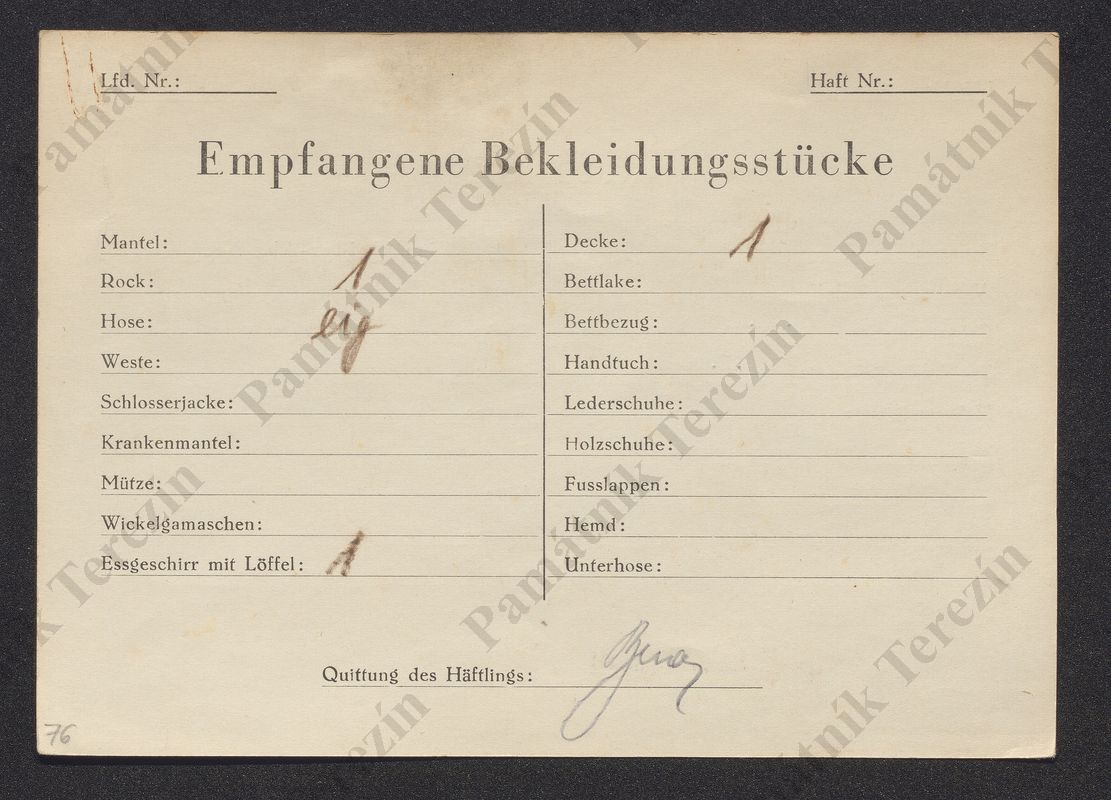 Lfd. Nr.:
Haft Nr.:
Empfangene Bekleidungsstücke
Mantel:
Rock: 1
Hose: eig
Weste:
Schlosserjacke:
Krankenmantel:
Mütze:
Wickelgamaschen:
Essgeschirr mit Löffel: 1
Decke: 1
Bettlake:
Bettbezug:
Handtuch:
Lederschuhe:
Holzschuhe:
Fusslappen:
Hemd:
Unterhose:
Quittung des Häftlings:
76
Památník Terezín
Památník Terezín
Památník Terezín
Památník Terezín